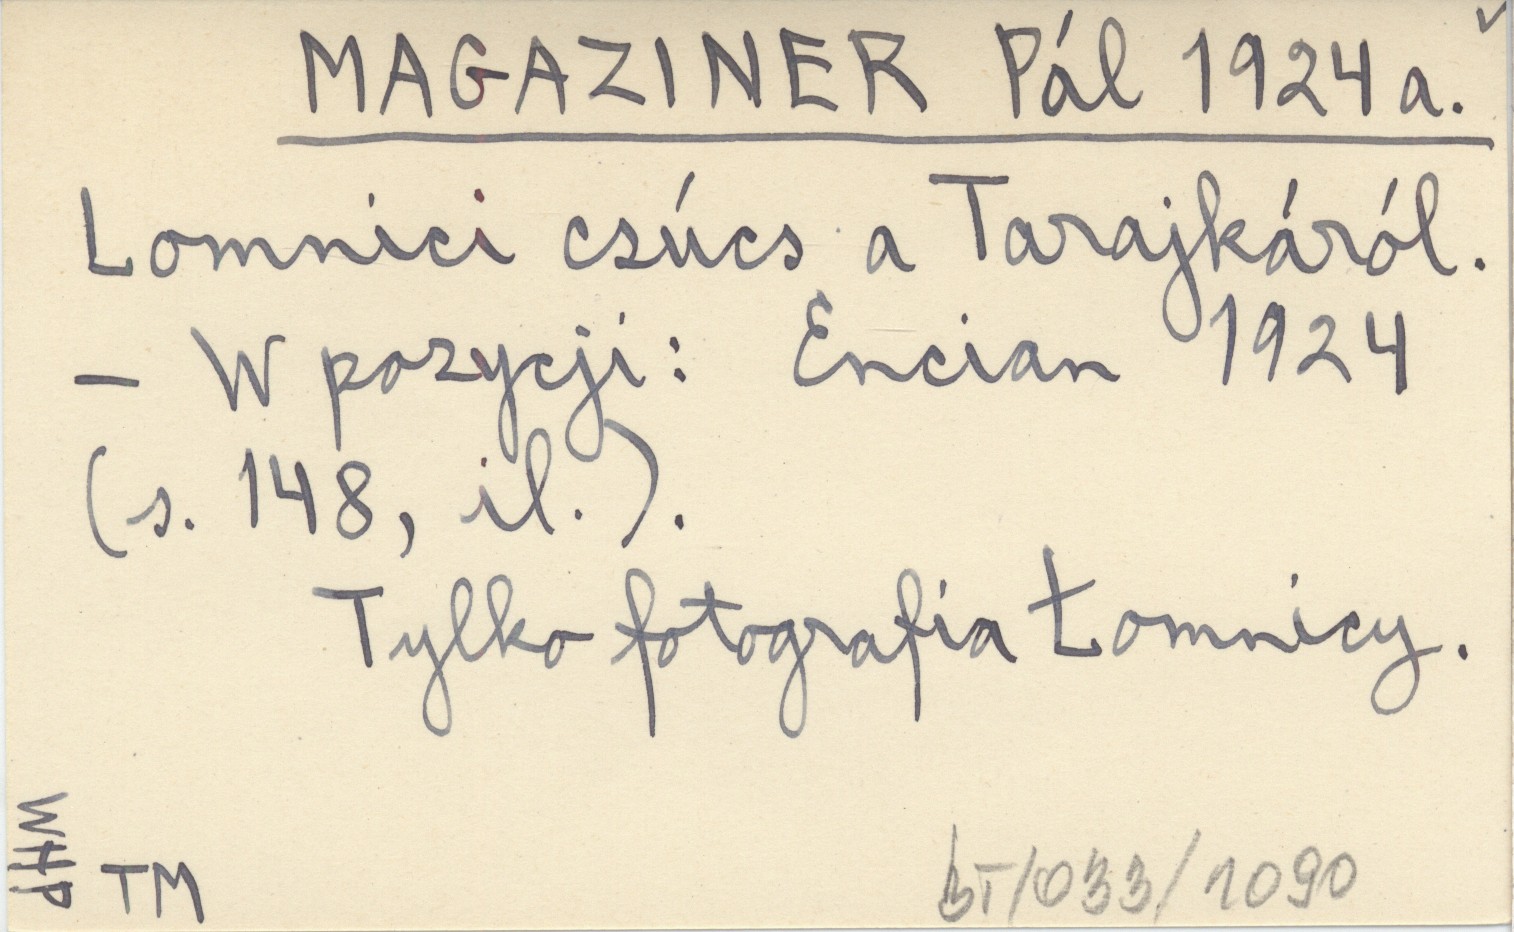 MAGAZINER Pál 1924a.
Lomnici csúcs a Tarajkáról.
– W pozycji: Encian 1924
(s. 148, il.).
Tylko fotografia Łomnicy.
WHP
TM
bT/033/1090